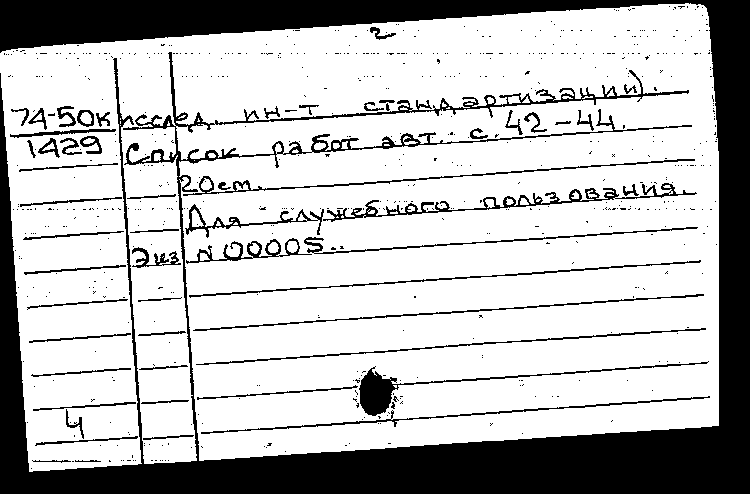 2
74-50к исслед. ин-т стандартизации).
1429 Список работ авт.: с. 42-44.
20см.
Для служебного пользования.
Экз N 00005..
4